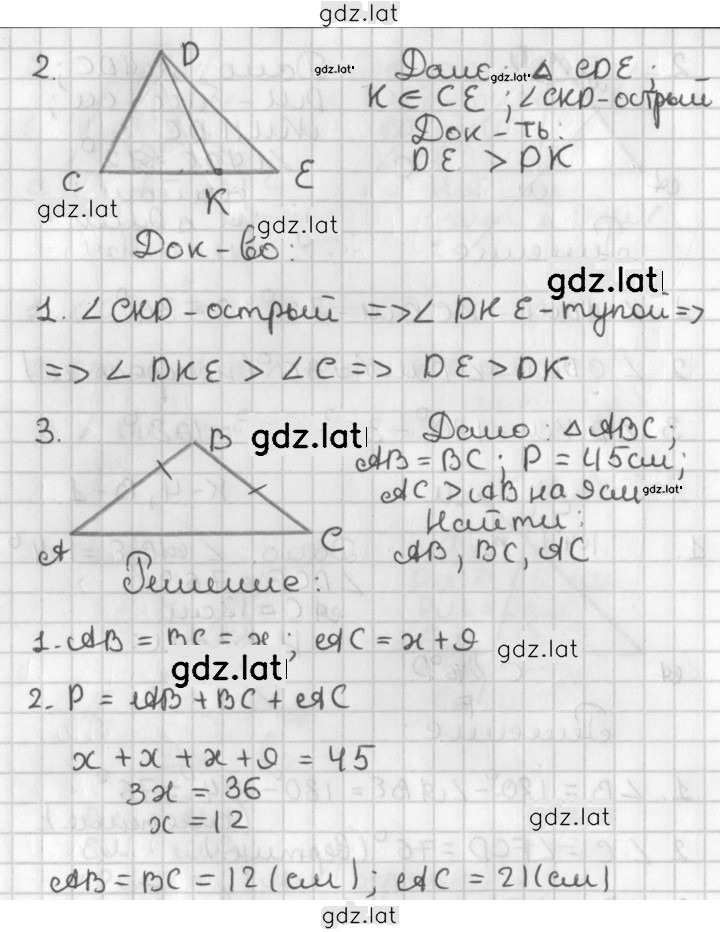 gdz.lat
2.
D
C
K
E
gdz.lat
Дано: gdz.lat △ CDE;
K ∈ CE; ∠CKD - острый
Док-ть:
DE > DK
gdz.lat
gdz.lat
Док-во:
gdz.lat
1. ∠CKD - острый => ∠ DKE - тупой =>
=> ∠ DKE > ∠C => DE > DK
3.
B
A
C
gdz.lat
Дано: △ABC;
AB = BC; P = 45см;
AC > AB на 9см gdz.lat
Найти:
AB, BC, AC
Решение:
1. AB = BC = x; AC = x + 9
gdz.lat
gdz.lat
2. P = AB + BC + AC
x + x + x + 9 = 45
3x = 36
x = 12
gdz.lat
AB = BC = 12 (см); AC = 21(см)
gdz.lat